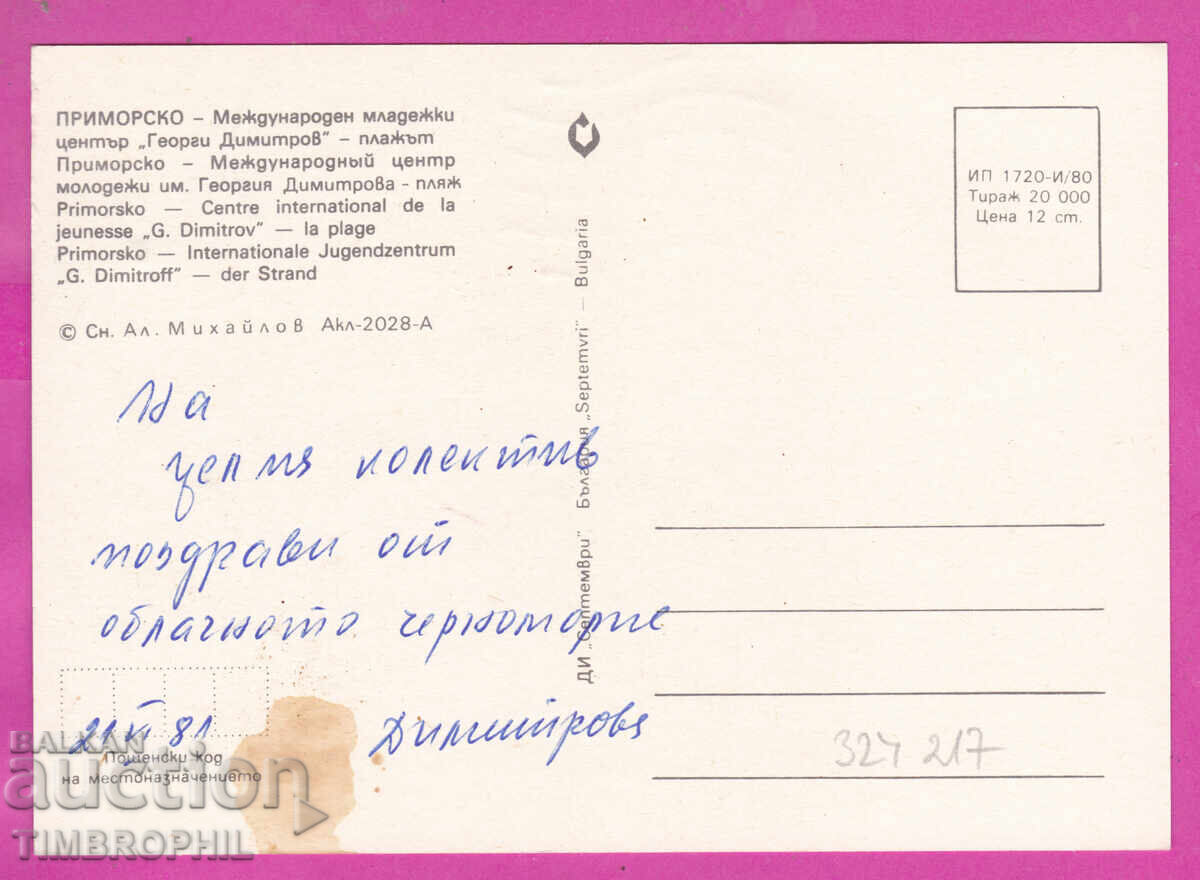 ПРИМОРСКО – Международен младежки
център „Георги Димитров" – плажът
Приморско – Международный центр
молодежи им. Георгия Димитрова - пляж
Primorsko — Centre international de la
jeunesse „G. Dimitrov" — la plage
Primorsko — Internationale Jugendzentrum
„G. Dimitroff" — der Strand
© Сн. Ал. Михайлов Акл-2028-А
На
целия колектив
поздрави от
облачното черноморие
81
Димитрова
Пощенски код
на местоназначението
ДИ „Септември" България „Septemvri" — Bulgaria
ИП 1720-И/80
Тираж 20 000
Цена 12 ст.
324 217
BALKAN
auction
TIMBROPHIL